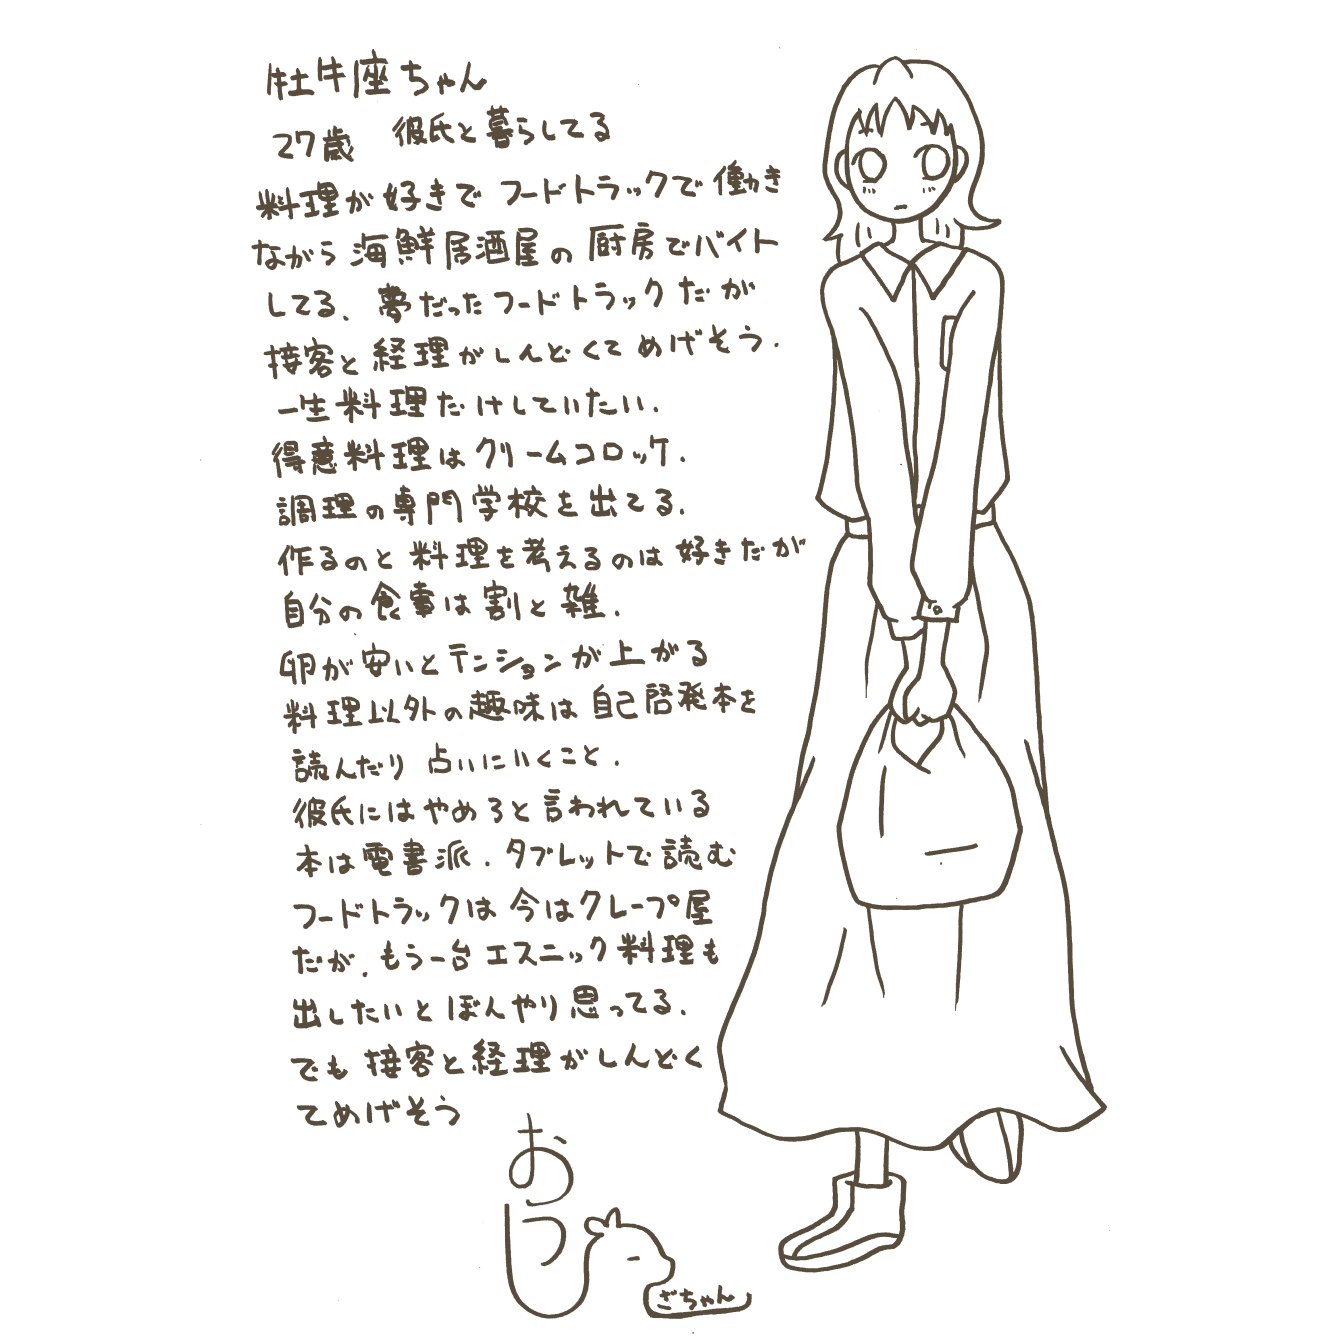 牡牛座ちゃん
27歳 彼氏と暮らしてる
料理が好きで フードトラックで働き
ながら海鮮居酒屋の厨房でバイト
してる、夢だったフードトラックだが
接客と経理がしんどくてめげそう.
一生料理だけしていたい.
得意料理はクリームコロッケ.
調理の専門学校を出てる.
作るのと料理を考えるのは好きだが
自分の食事は割と雑.
卵が安いとテンションが上がる
料理以外の趣味は自己啓発本を
読んだり占いにいくこと.
彼氏にはやめろと言われている
本は電書派.タブレットで読む
フードトラックは今はクレープ屋
だが、もう一台エスニック料理も
出したいとぼんやり思ってる.
でも接客と経理がしんどく
てめげそう
おうし
ざちゃん